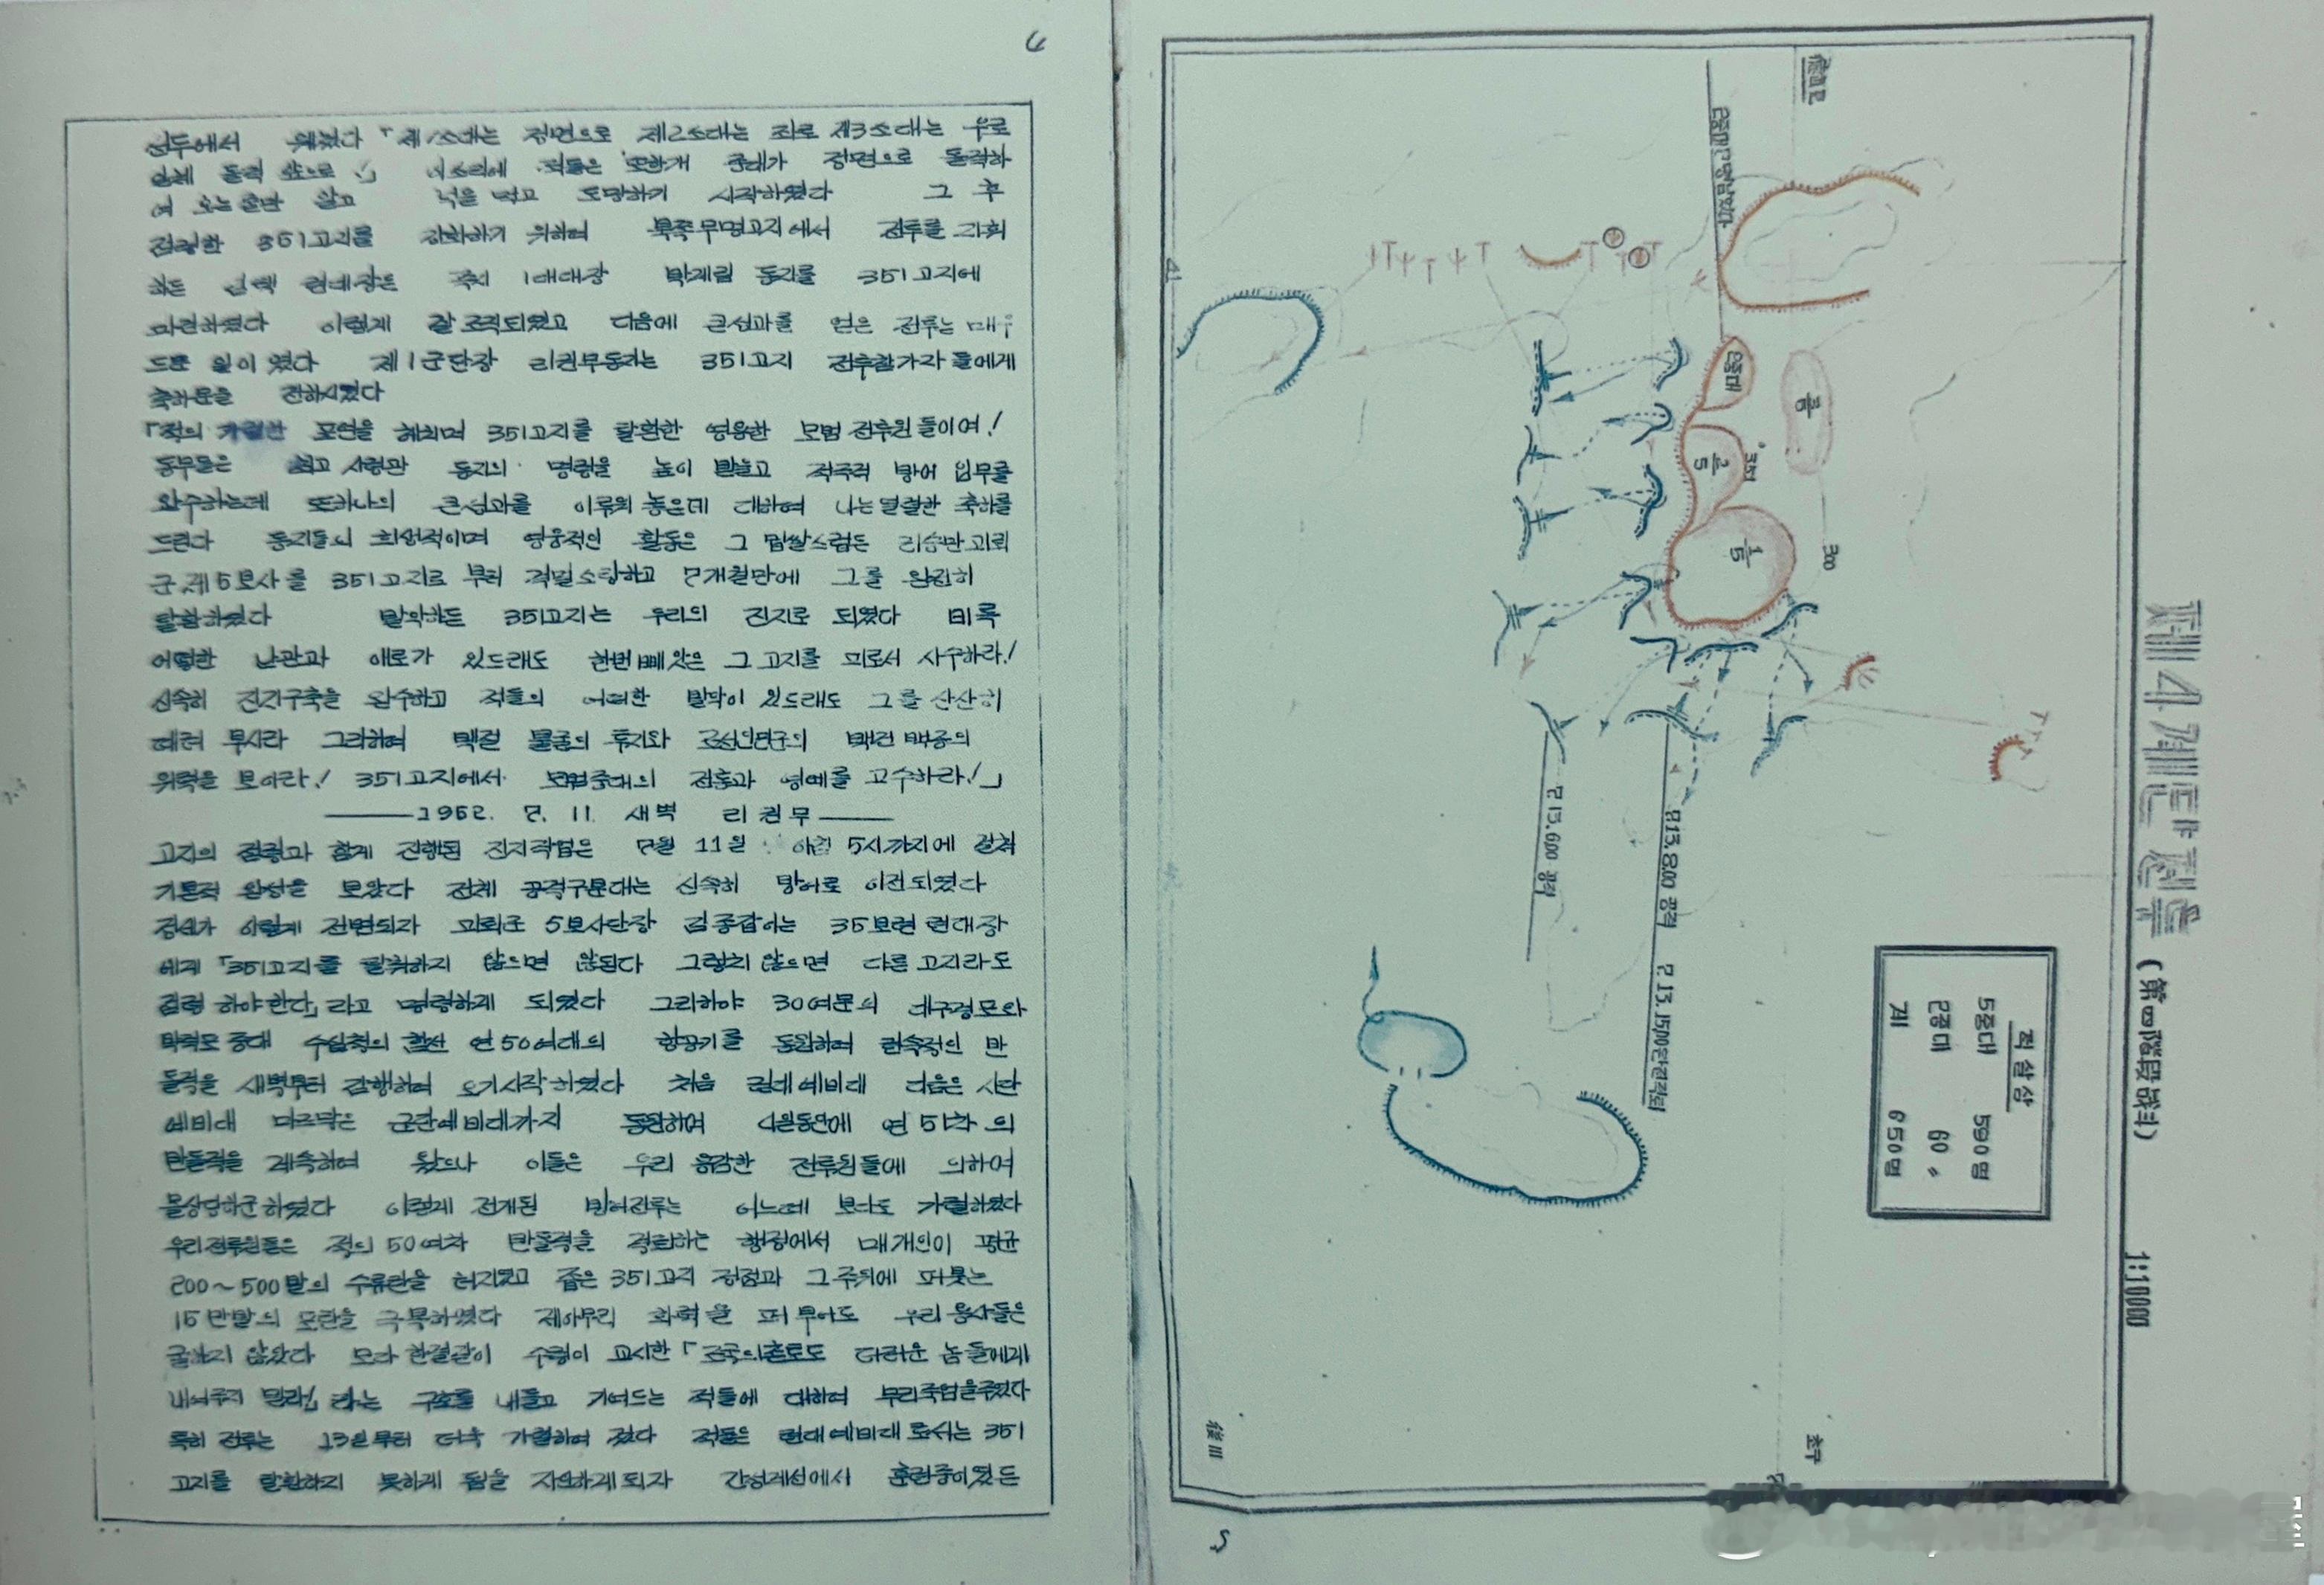 선두에서 웨쳤다 「제1소대는 정면으로 제2소대는 좌로 제3소대는 우로
일제 돌격 앞으로!」 이소리에 적들은 또한개 중대가 정면으로 돌격하
여 오는줄만 알고 넋을 먹고 도망하기 시작하였다 그 후
점령한 351고지를 강화하기 위하여 북쪽무명고지에서 전투를 지휘
하든 련대장은 즉시 1대대장 박게림 동지를 351고지에
파견하였다 이렇게 잘 조직되었고 다음에 큰성과를 얻은 전투는 매우
드문 일이 였다 제1군단장 리권무동지는 351고지 전투참가자 들에게
축하문을 전하시였다
「적의 가렬한 포연을 헤치며 351고지를 탈환한 영용한 모범 전투원들이여!
동무들은 최고 사령관 동지의 명령을 높이 받들고 적극적 방어 임무를
완수하는데 또하나의 큰성과를 이루워 놓은데 대하여 나는열렬한 축하를
드린다 동지들의 희생적이며 영웅적인 활동은 그 밉쌀스럽든 리승만괴뢰
군 제5보사를 351고지로 부터 적멸소탕하고 7개월만에 그를 완전히
탈환하였다 발악하든 351고지는 우리의 진지로 되였다 비록
어떠한 난관과 애로가 있드래도 한번빼앗은 그고지를 피로서 사수하라!
신속히 진지구축을 완수하고 적들의 여하한 발악이 있드래도 그를 산산히
때려 부시라 그리하여 백절 불굴의 투지와 조선인민군의 백전 백승의
위력을 보이라! 351고지에서 모범중대의 전통과 영예를 고수하라!」
1952. 7. 11. 새벽 리권무
고지의 점령과 함께 진행된 진지작업은 7월 11일 아침 5시까지에 걸쳐
기본적 완성을 보았다 전체 공격구분대는 신속히 방어로 이전되였다
정세가 이렇게 전변되자 괴뢰군 5보사단장 김종갑이는 35보련 련대장
에게 「351고지를 탈취하지 않으면 않된다 그렇치 않으면 다른 고지라도
점령 하야한다」라고 명령하게 되였다 그리하야 30여문의 대구경포와
박격포 중대 수십척의 함선 연50여대의 항공기를 동원하여 련속적인 반
돌격을 새벽부터 감행하여 오기시작하였다 처음 련대예비대 다음은 사단
예비대 마즈막은 군단예비대까지 동원하여 4일동안에 연 51차의
반돌격을 계속하여 왔으나 이들은 우리 용감한 전투원들에 의하여
몰상당하군하였다 이렇게 전개된 방어전투는 어느때 보다도 가렬하였다
우리전투원들은 적의 50여차 반돌격을 격퇴하는 행정에서 매개인이 평균
200~500발의 수류탄을 던지였고 좁은 351고지 정점과 그주위에 퍼붓는
15만발의 포탄을 극복하였다 제아무리 화력을 퍼부어도 우리용사들은
굴하지 않았다 모다 한결같이 수령이 교시한 「조국의촌토도 더러운 놈들에게
내여주지 말라」라는 구호를 내들고 기여드는 적들에 대하여 무리죽엄을주었다
특히 전투는 13일부터 더욱 가렬하여 졌다 적들은 련대예비대로서는 351
고지를 탈환하지 못하게 됨을 자인하게되자 간성계선에서 훈련중이였든
제4계단 전투 (第四階段战斗)
1:10000
적살상
5중대 590명
2중대 60〃
계 650명
2중대
2/5
1/5
351
300
7.13.600 공격
7.13.800 공격
7.13.1500완전격퇴
41
초구
5